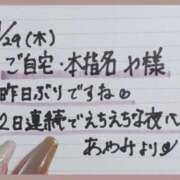 /29(木)
ご自宅・本指名 や様
昨日ぶりですね
2日連続でえちえちな夜
あやみより